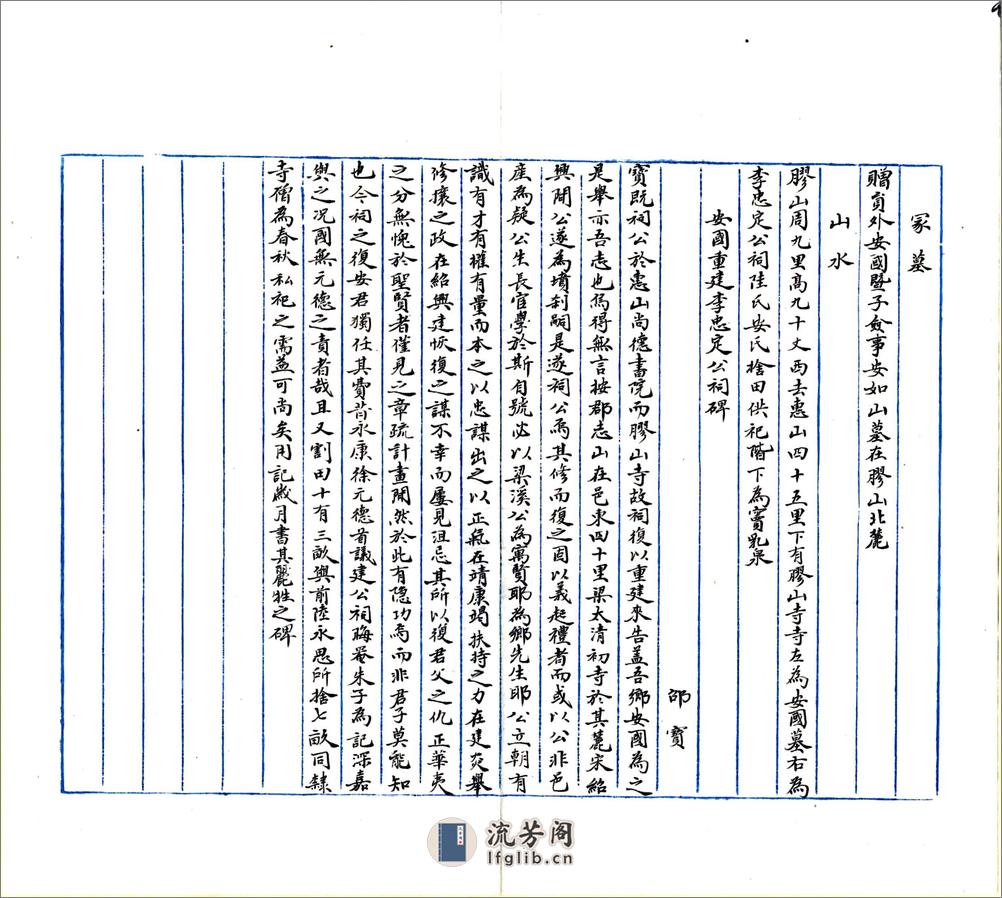 冢墓
贈員外安國暨子僉事安如山墓在膠山北麓
山水
膠山周九里高九十丈西去惠山四十五里下有膠山寺寺左為安國墓右為
李忠定公祠陸氏安氏捨田供祀階下為竇乳泉
安國重建李忠定公祠碑
邵寶
寶既祠公於惠山尚德書院而膠山寺故祠復以重建來告蓋吾鄉安國為之
是舉亦吾志也焉得無言按郡志山在邑東四十里梁太清初寺於其麓宋紹
興間公遂為墳刹嗣是遂祠公焉其修而復之固以義起禮者而或以公非邑
產為疑公生長官學於斯自號必以梁溪公為寓賢耶為鄉先生耶公立朝有
識有才有權有量而本之以忠謀出之以正氣在靖康竭扶持之力在建炎舉
修攘之政在紹興建恢復之謀不幸而屢見沮忌其所以復君父之仇正華夷
之分無愧於聖賢者僅見之章疏計畫閒然於此有隱功焉而非君子莫能知
也今祠之復安君獨任其費昔永康徐元德首議建公祠晦菴朱子為記深嘉
與之况國無元德之責者哉且又割田十有三畝與前陸永思所捨七畝同隸
寺僧為春秋私祀之需蓋可尚矣用記歲月書其麗牲之碑
流芳阁
lfglib.cn